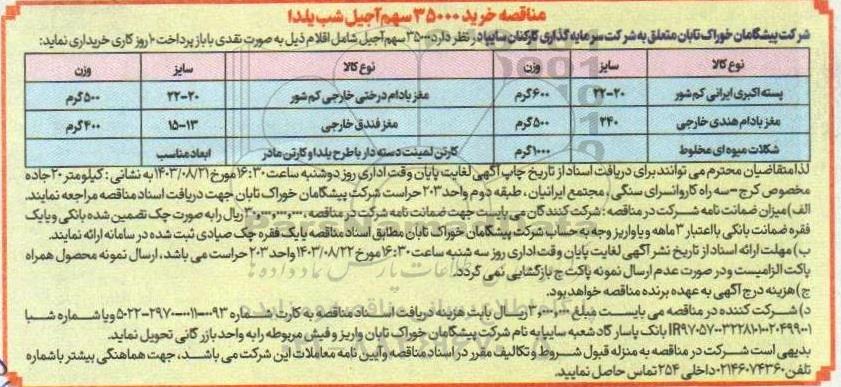 مناقصه خرید ۳۵۰۰۰ سهم آجیل شب یلدا
شرکت پیشگامان خوراک تابان متعلق به شرکت سرمایه گذاری کارکنان سایپا در نظر دارد ۳۵۰۰۰ سهم آجیل شامل اقلام ذیل به صورت نقدی با باز پرداخت ۱۰ روز کاری خریداری نماید:
نوع کالا سایز وزن نوع کالا سایز وزن
پسته اکبری ایرانی کم شور ۲۰-۲۲ ۶۰۰ گرم مغز بادام درختی خارجی کم شور ۲۰-۲۲ ۵۰۰ گرم
مغز بادام هندی خارجی ۲۴۰ ۵۰۰ گرم مغز فندق خارجی ۱۳-۱۵ ۴۰۰ گرم
شکلات میوه ای مخلوط ۱۰۰۰ گرم کارتن لمینت دسته دار با طرح یلدا و کارتن مادر ابعاد مناسب
لذا متقاضیان محترم می توانند برای دریافت اسناد از تاریخ چاپ آگهی لغایت پایان وقت اداری روز دوشنبه ساعت ۱۶:۳۰ مورخ ۱۴۰۳/۰۸/۲۱ به نشانی : کیلومتر ۲۰ جاده
مخصوص کرج - سه راه کاروانسرای سنگی، مجتمع ایرانیان، طبقه دوم واحد ۲۰۳ حراست شرکت پیشگامان خوراک تابان جهت دریافت اسناد مناقصه مراجعه نمایند.
الف) میزان ضمانت نامه شرکت در مناقصه : شرکت کنندگان می بایست جهت ضمانت نامه شرکت در مناقصه، ریال را به صورت چک تضمین شده بانکی و یا یک
فقره ضمانت بانکی با اعتبار ۳ ماهه و یا واریز وجه به حساب شرکت پیشگامان خوراک تابان مطابق اسناد مناقصه یا یک فقره چک صیادی ثبت شده در سامانه ارائه نمایند.
ب) مهلت ارائه اسناد از تاریخ نشر آگهی لغایت پایان وقت اداری روز سه شنبه ساعت ۱۶:۳۰ مورخ ۱۴۰۳/۰۸/۲۲ واحد ۲۰۳ حراست می باشد، ارسال نمونه محصول همراه
پاکت الزامیست و در صورت عدم ارسال نمونه پاکت ج بازگشایی نمی گردد.
ج) هزینه درج آگهی به عهده برنده مناقصه خواهد بود.
د) شرکت کننده در مناقصه می بایست مبلغ ریال بابت هزینه دریافت اسناد مناقصه به کارت شماره و یا شماره شبا
بانک پاسارگاد شعبه سایپا به نام شرکت پیشگامان خوراک تابان واریز و فیش مربوطه را به واحد بازرگانی تحویل نماید.
بدیهی است شرکت در مناقصه به منزله قبول شروط و تکالیف مقرر در اسناد مناقصه و آیین نامه معاملات این شرکت می باشد، جهت هماهنگی بیشتر با شماره
تلفن ۰۲۱۴۶۰۷۴۳۶۰ داخلی ۲۵۴ تماس حاصل نمایید.